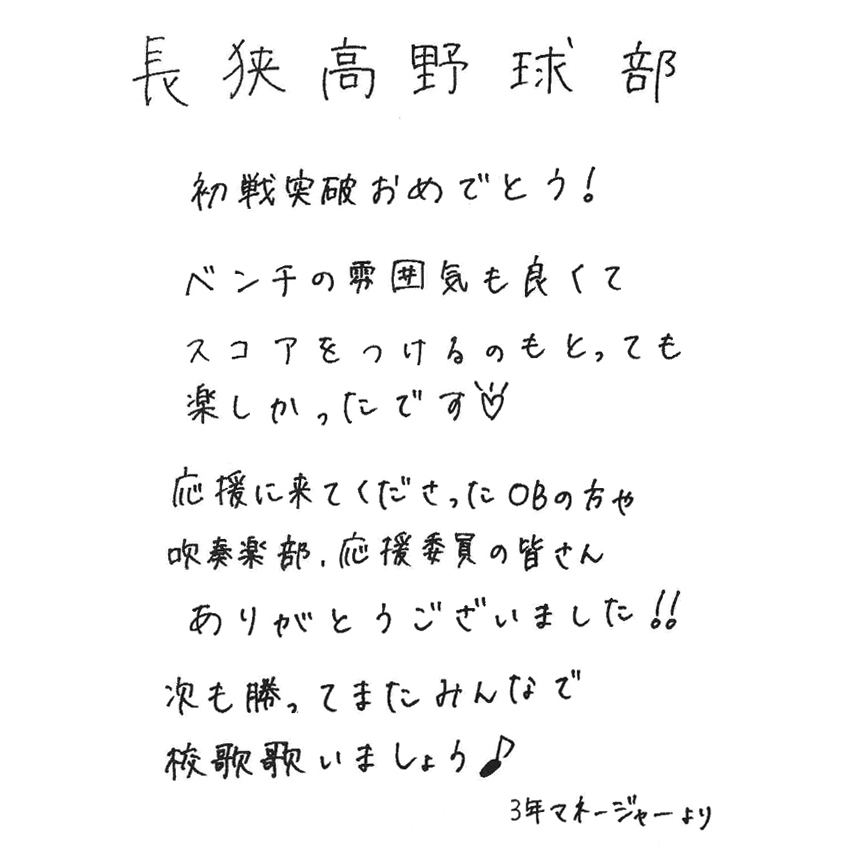 長狭高野球部
初戦突破おめでとう!
ベンチの雰囲気も良くて
スコアをつけるのもとっても
楽しかったです♡
応援に来てくださったOBの方や
吹奏楽部、応援委員の皆さん
ありがとうございました!!
次も勝ってまたみんなで
校歌歌いましょう♪
3年マネージャーより